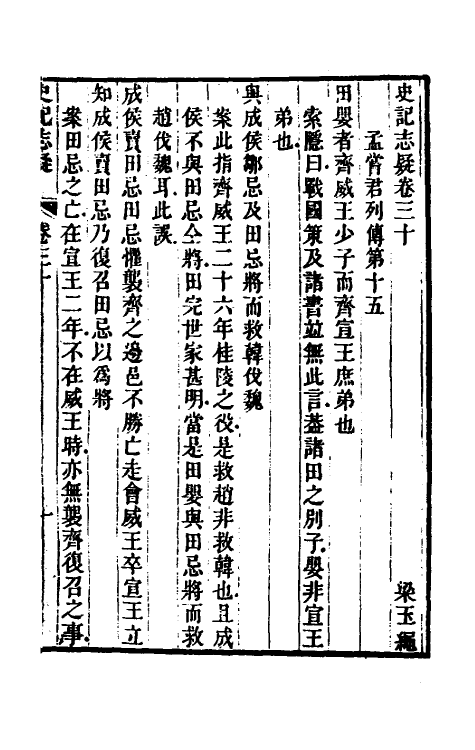 史記志疑卷三十
梁玉繩
孟嘗君列傳第十五
田嬰者齊威王少子而齊宣王庶弟也
索隱曰戰國策及諸書竝無此言葢諸田之別子嬰非宣王
弟也
與成侯鄒忌及田忌將而救韓伐魏
案此指齊威王二十六年桂陵之役是救趙非救韓也且成
侯不與田忌仝將田完世家甚明當是田嬰與田忌將而救
趙伐魏耳此誤
成侯賣田忌田忌懼襲齊之邊邑不勝亡走會威王卒宣王立
知成侯賣田忌乃復召田忌以爲將
案田忌之亡在宣王二年不在威王時亦無襲齊復召之事
史記志疑
卷三十
一